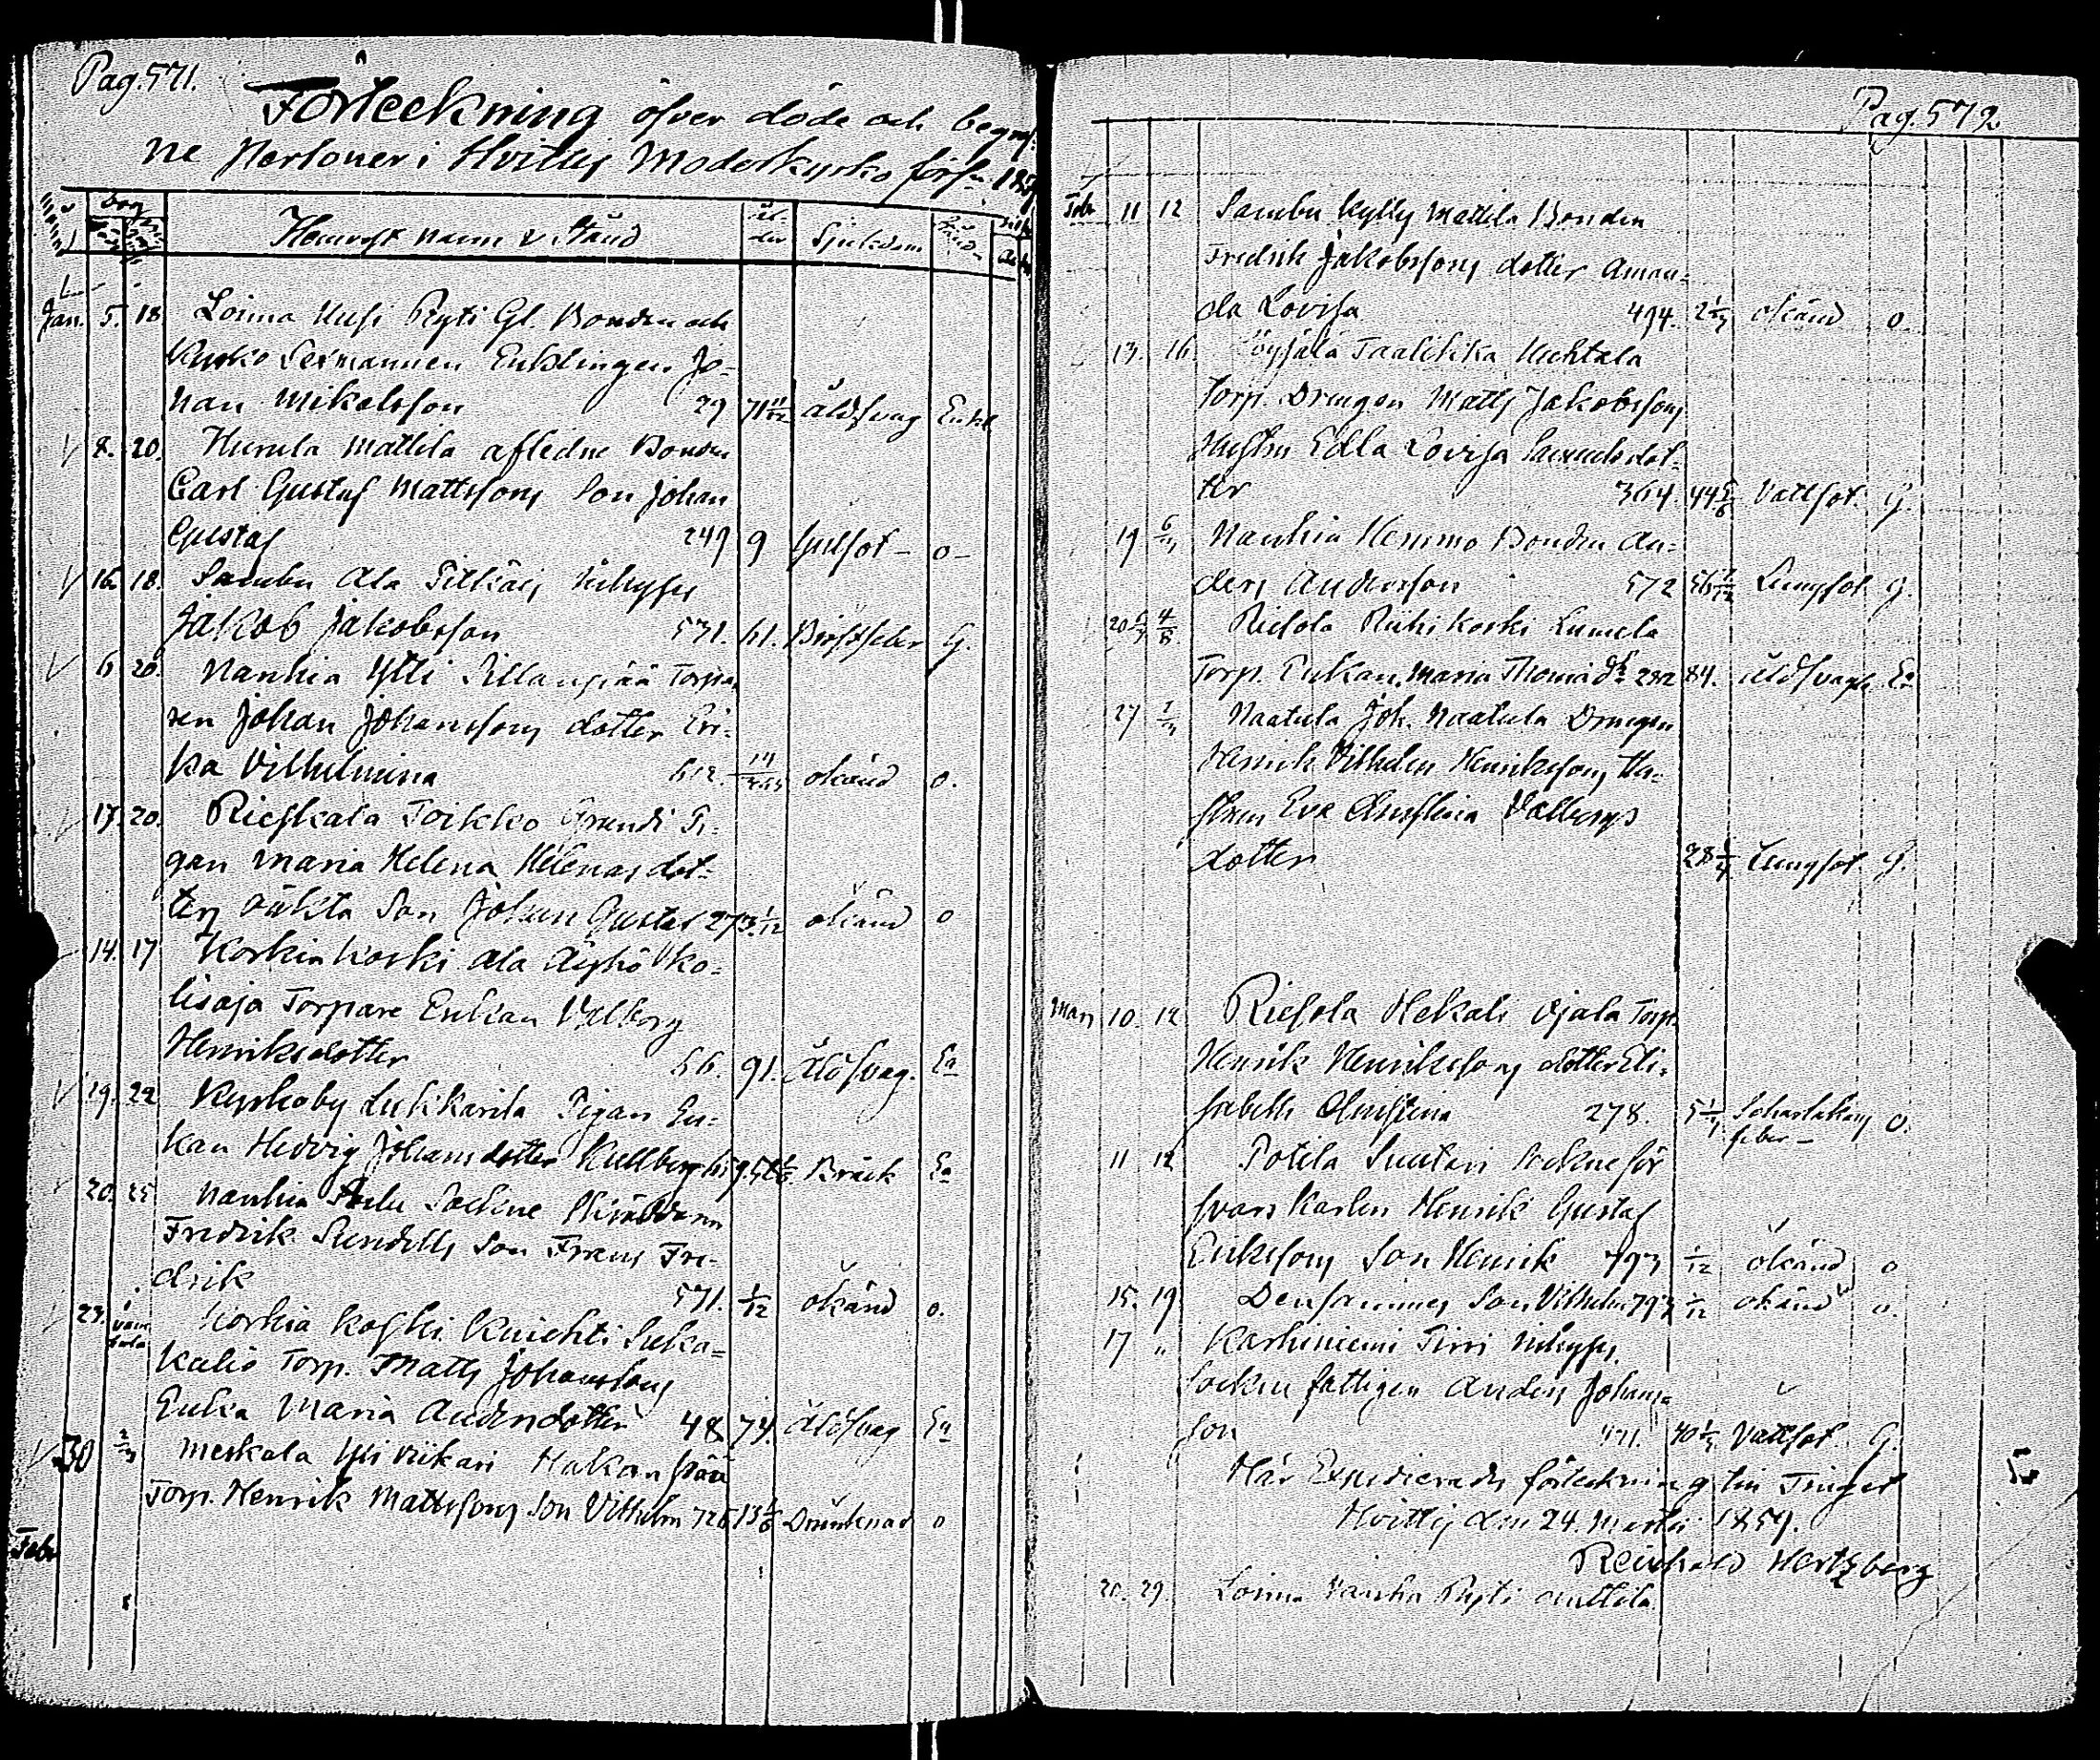 Pag. 571.
Förteckning öfver döde och begraf-
ne Personer i Hvittis Moderkyrko förs:n 1859
Dag
Hemvist namn & Stånd Ål-der Sjukdom
Jan. 5. 18 Loima Uusi Ryti Gl. Bonden och
Kyrko Sexmannen Enklingen Jo-
han Mikelsson 29 71 11/12 åldsvag Enkl
8. 20. Hurula Mattila afledne Bonden
Carl Gustaf Mattssons Son Johan
Gustaf 249 9 Gulsot - o -
16. 18. Sambu Ala Pitkäis Inhyses
Jakob Jakobsson 531. 61. Bröstfeber G.
6 20. Nanhia Ylli Sillanpää Torpa-
ren Johan Johanssons dotter Eri-
ka Vilhelmina 612. okänd o.
17. 20. Rieskala Toikko Grundi Pi-
gan Maria Helena Helenas dot-
ters oäkta Son Johan Gustaf 273 1/12 okänd o
14. 17 Korkia koski Ala Äyhö Uko-
lisoja Torpare Enkan Valborg
Henriksdotter 56. 91. Åldsvag. Ea
19. 22 Kyrkoby Lukkarila Pigan En-
kan Hedvig Johansdotter Kullberg Bråck Ea
20. 25 Nanhia Sockne Skräddarn
Fredrik Sundells Son Frans Fre-
drik 571. 1/12 okänd o.
23. Korkia koski Knichti Suka-
kalio Torp. Matts Johanssons
Enka Maria Andersdotter 48 74. Åldsvag Ea
30 2/3 Meskala Yli Viikari Hakanpää
Torp. Henrik Mattssons Son Vilhelm 726 13 Drunknad o
Febr
Pag. 572.
Febr 11 12 Sambu Kylly Mattila Bonden
Fredrik Jakobssons dotter Aman-
da Lovisa 494. okänd o.
13. 16. Löysälä Taalikka Uuhtala
Torp. Drengen Matts Jakobssons
Hustru Edla Lovisa Samuelsdot-
ter 364. 44 5/6 Vattsot. G.
19 6/3 Nanhia Hemmo Bonden An-
ders Andersson 572 Lungsot G.
20 Riesola Riihi koski Lumela
Torp. Enkan Maria Thomasdr 282 84. åldsvagh. Ea
27 Naatula Joh. Naatula Drengen
Henrik Vilhelm Henrikssons Hu-
strun Eva Christina Valborgs
dotter 28 1/4 Lungsot G.
Mars 10. 12 Riesola Hekali Ojala Torp.
Henrik Henrikssons dotter Eli-
sabeth Christina 278. Scharlakans feber - o.
11 12 Potila Suutari Sockneför
svars Karlen Henrik Gustaf
Erikssons Son Henrik 793 1/12 okänd o
15. 19 Densammes Son Vilhelm 793 1/12 okänd o.
17 " Karhiniemi Tirri Inhyses
Socken fattigen Anders Johans-
son 40 Vattsot. G.
Här Expedierades förteckning till Tinget
Hvittis den 24. Martii 1859.
Reinhold Hertzberg
20. 29. Loima Vanha Ryti Anttila